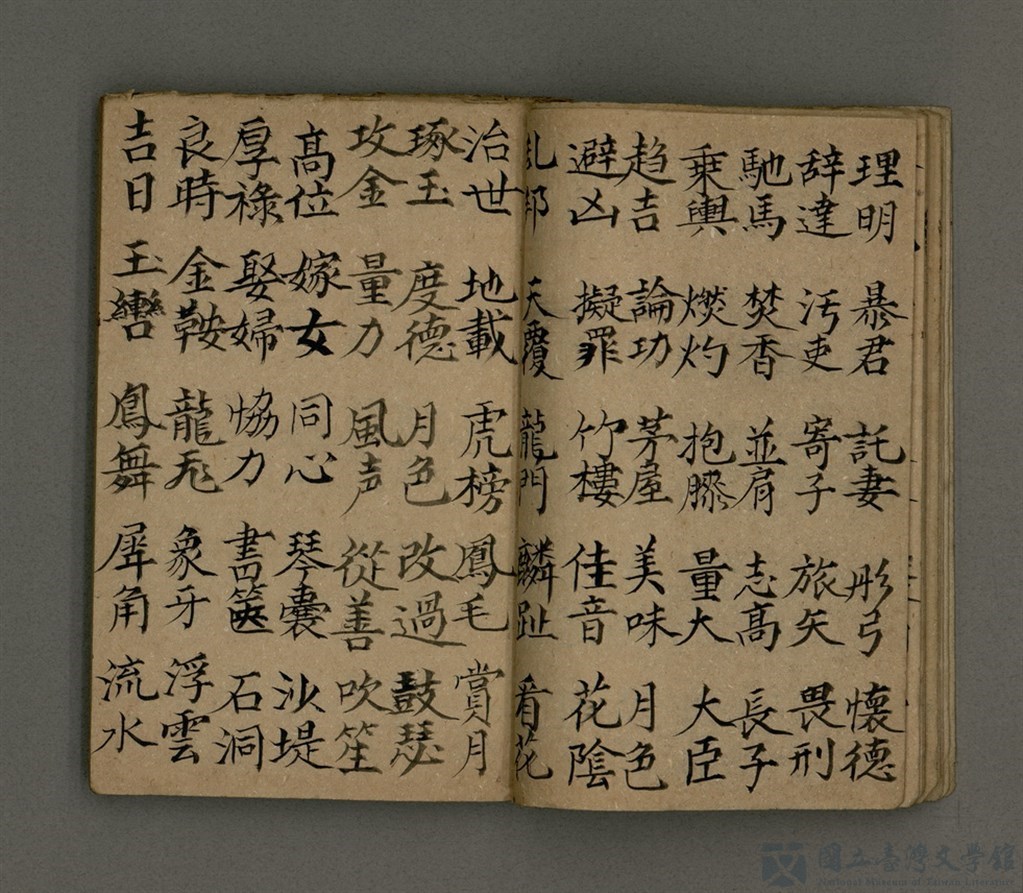 理明 暴君 託妻 彤弓 懷德
辞達 污吏 寄子 旅矢 畏刑
馳馬 焚香 並肩 志高 長子
乗輿 燃灼 抱膝 量大 大臣
趋吉 論功 茅屋 美味 月色
避凶 擬罪 竹樓 佳音 花陰
乱邦 天覆 龍門 麟趾 看花
治世 地載 虎榜 鳳毛 賞月
琢玉 度德 月色 改過 鼓瑟
攻金 量力 風声 從善 吹笙
高位 嫁女 同心 琴囊 沙堤
厚祿 娶婦 恊力 書篋 石洞
良時 金鞍 龍飛 象牙 浮雲
吉日 玉轡 鳳舞 犀角 流水
國立臺灣文學館
National Museum of Taiwan Literature